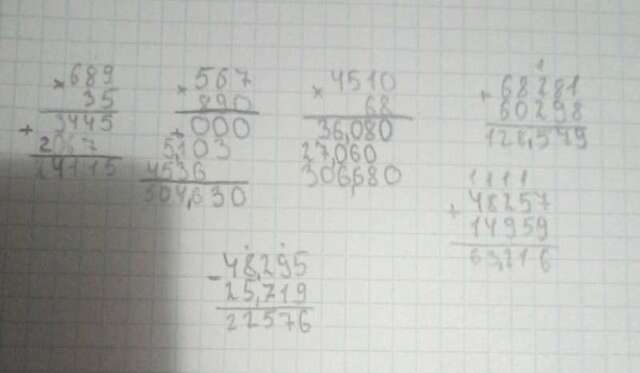 × 689
35
+ 3445
2067
24115
× 567
890
+ 000
5103
4536
504,630
× 4510
68
36,080
27,060
306,680
1
+ 68281
60298
128,579
1111
+ 48257
14959
63,216
- 48,295
25,719
22576